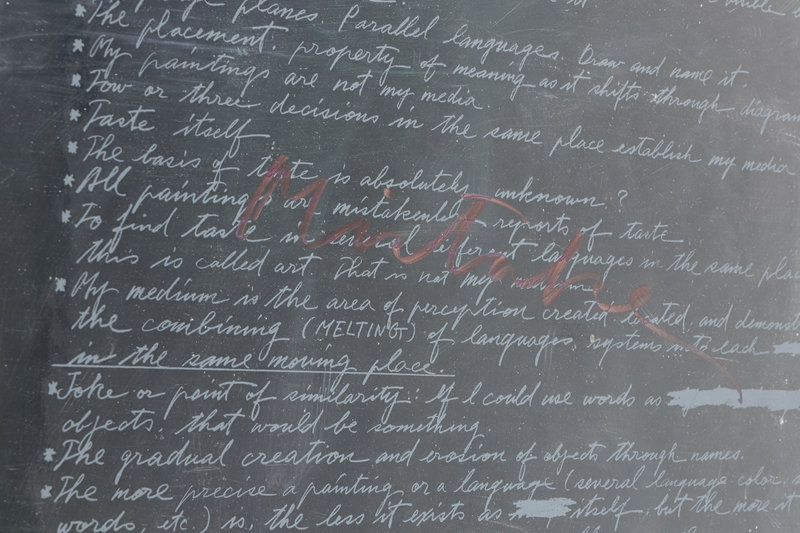 planes. Parallel languages. Draw and name it.
* The placement, property of meaning as it shifts through diagram
* My paintings are not my media.
* Tow or three decisions in the same place establish my media
* Taste itself
* The basis of taste is absolutely unknown?
* All paintings are mistakenly reports of taste
* To find taste in several different languages in the same place
this is called art. That is not my medium
* My medium is the area of perception created, located, and demonst
the combining (MELTING) of languages, systems into each
in the same moving place.
* Joke or point of similarity: If I could use words as
objects, that would be something
* The gradual creation and erosion of objects through names.
* The more precise a painting or a language (several language color,
words, etc.) is, the less it exists as itself, but the more it
Mistake